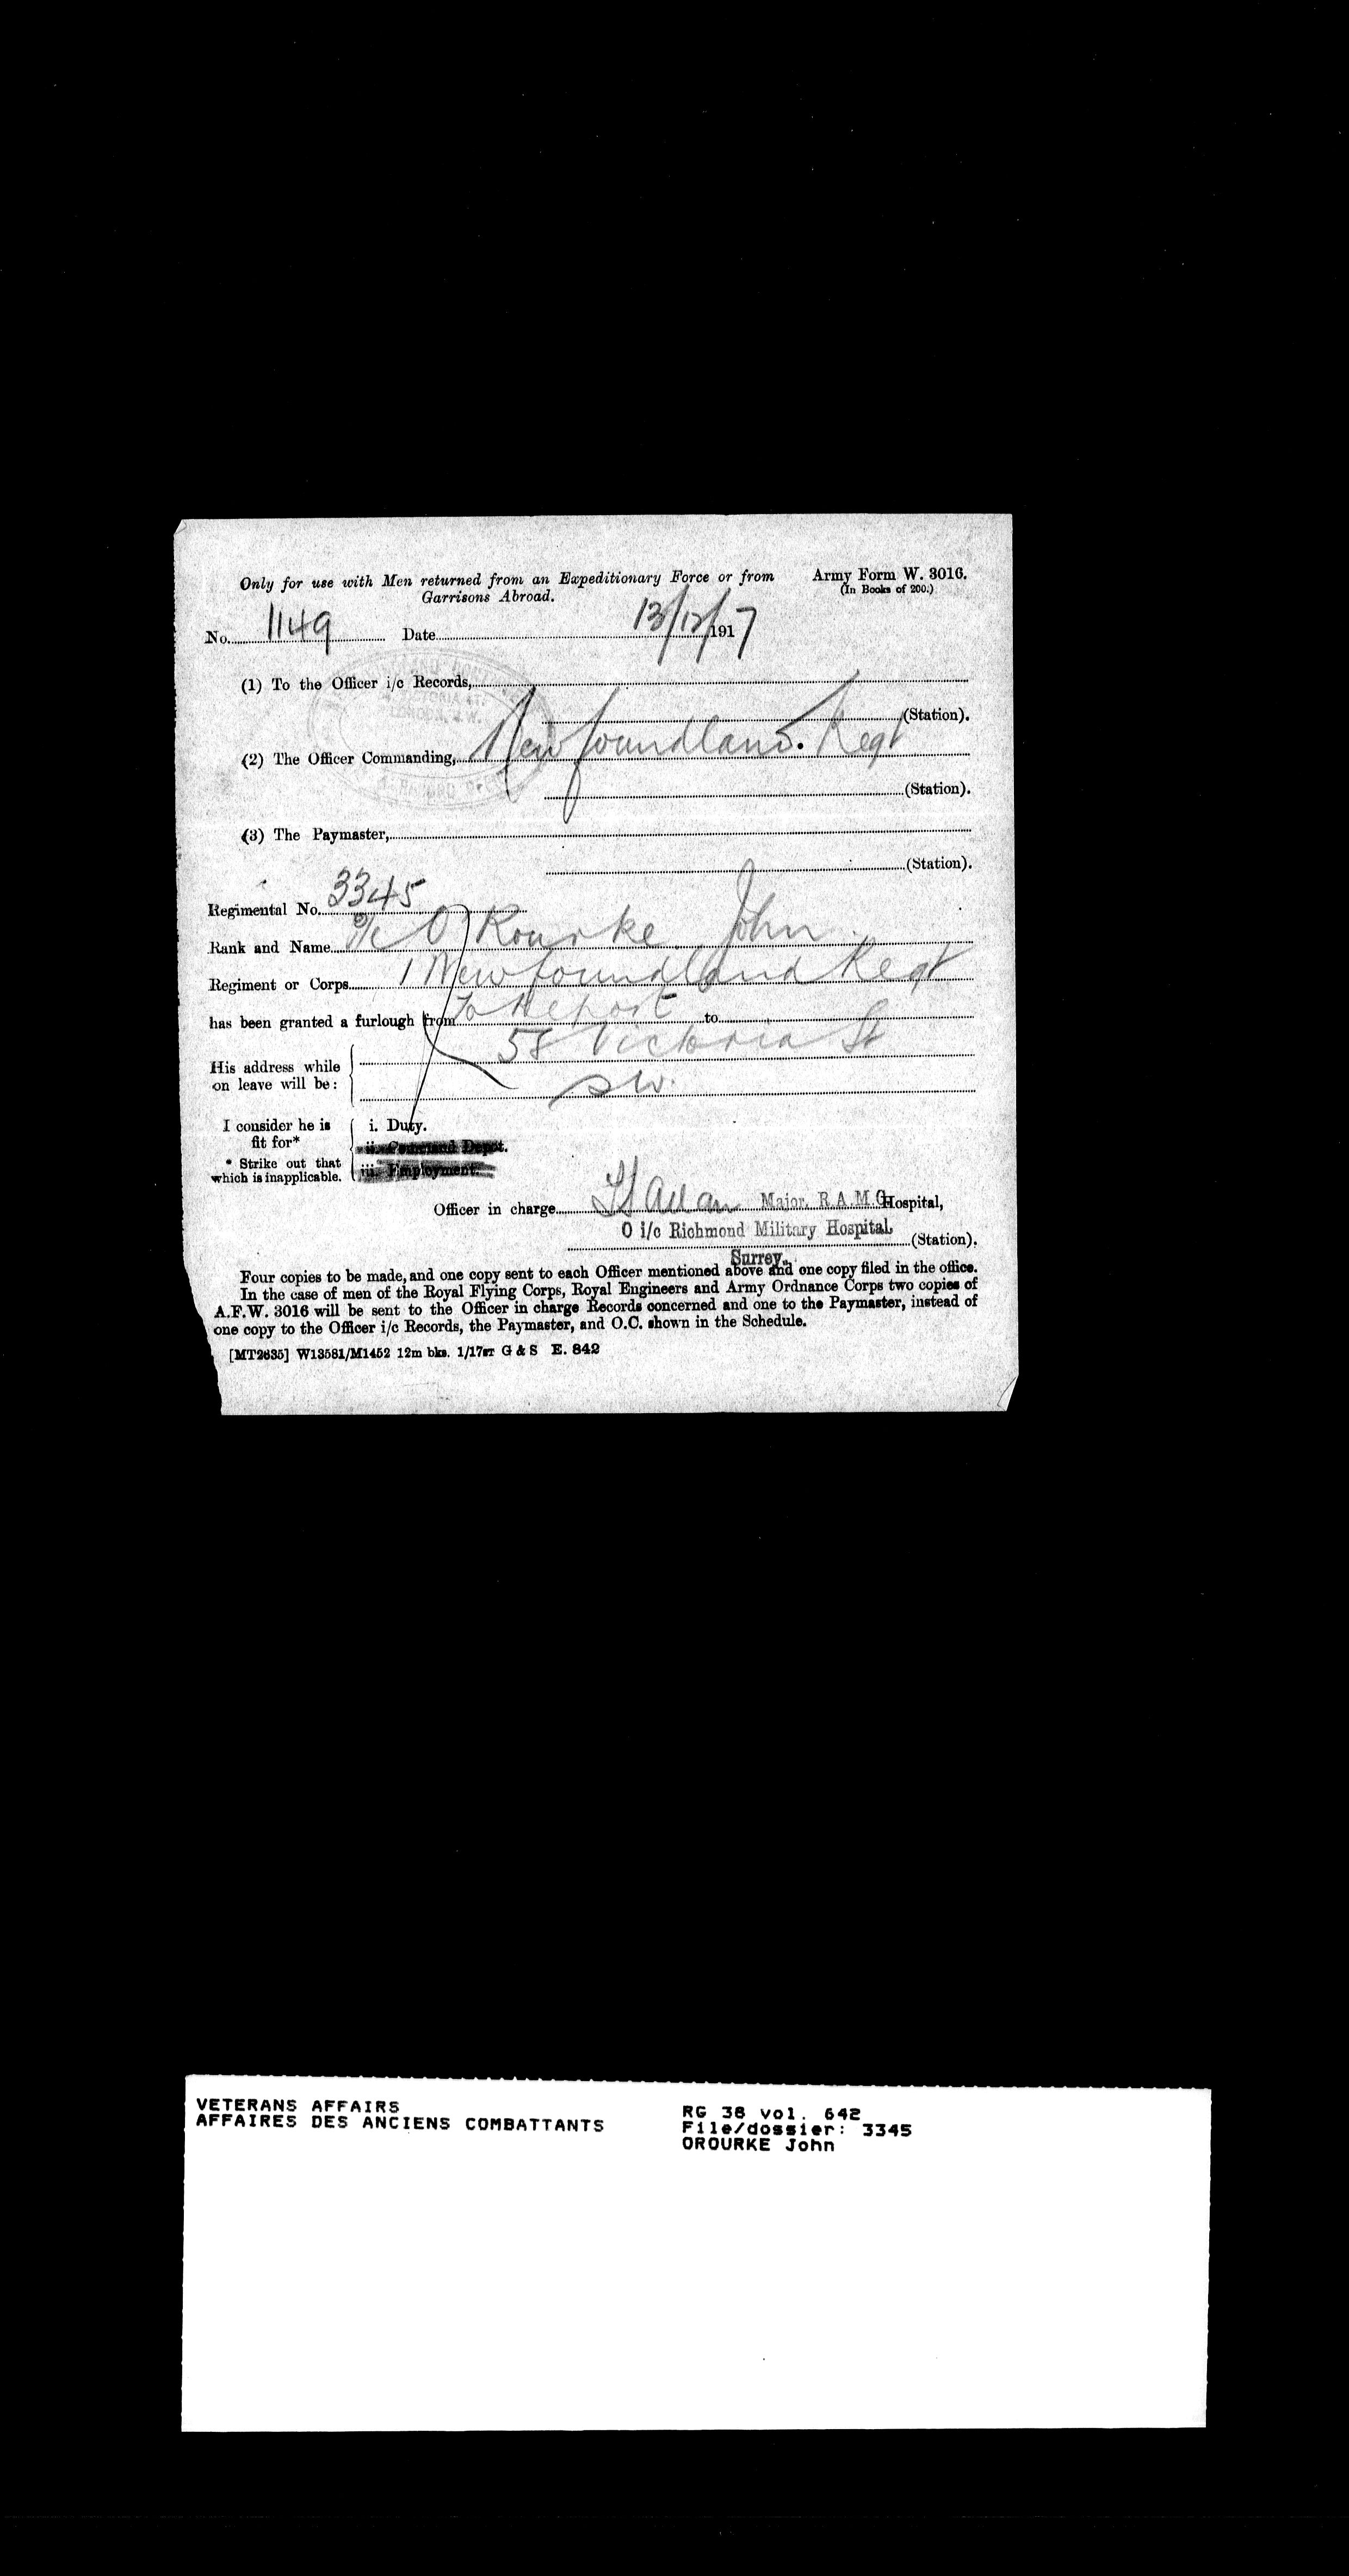 Only for use with Men returned from an Expeditionary Force or from
Garrisons Abroad.
Army Form W. 3016.
(In Books of 200.)
No. 1149 Date 13/12/1917
(1) To the Officer i/c Records,
(Station).
(2) The Officer Commanding, Newfoundland. Regt
(Station).
(3) The Paymaster,
(Station).
Regimental No. 3345
Rank and Name O'Rourke John
Regiment or Corps 1 Newfoundland Regt
has been granted a furlough from To Report to
58 Victoria St
His address while
on leave will be:
SW.
I consider he is
fit for*
i. Duty.
ii. Command Depot.
* Strike out that
which is inapplicable.
iii. Employment.
Officer in charge Major. R.A.M.C. Hospital,
O i/c Richmond Military Hospital (Station).
Surrey.
Four copies to be made, and one copy sent to each Officer mentioned above and one copy filed in the office.
In the case of men of the Royal Flying Corps, Royal Engineers and Army Ordnance Corps two copies of
A.F.W. 3016 will be sent to the Officer in charge Records concerned and one to the Paymaster, instead of
one copy to the Officer i/c Records, the Paymaster, and O.C. shown in the Schedule.
[MT2635] W13581/M1452 12m bks. 1/17 G & S E. 842
VETERANS AFFAIRS
AFFAIRES DES ANCIENS COMBATTANTS
RG 38 vol. 642
File/dossier: 3345
OROURKE John